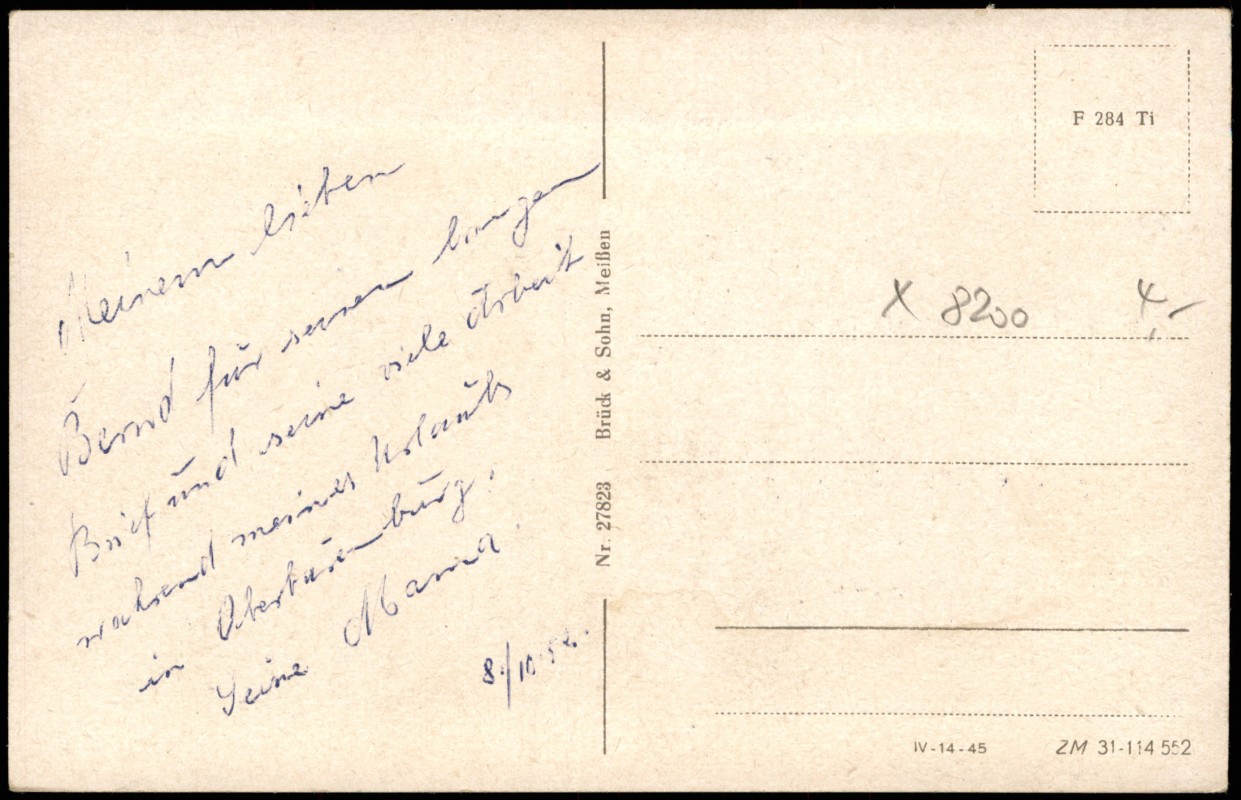 Meinem lieben
Bernd für seinen langen
Brief und seine viele Arbeit
während meines Urlaubs
in Oberbärenburg.
Seine Mama
8./10.
Nr. 27823 Brück & Sohn, Meißen
F 284 Ti
X 8200 4,-
IV-14-45 ZM 31-114 552